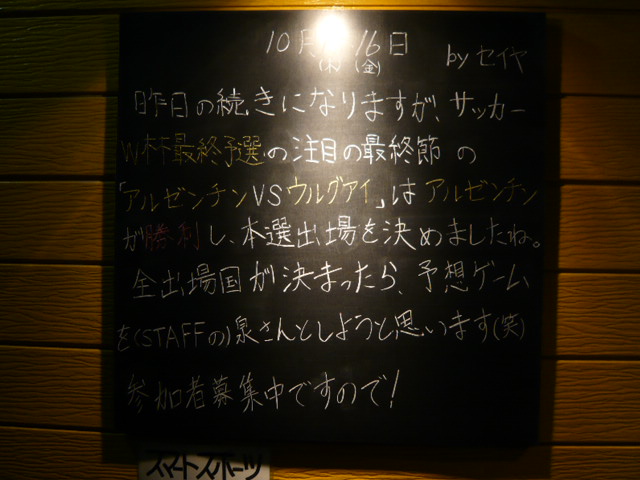 10月 16日 byセイヤ
(木) (金)
昨日の続きになりますが、サッカー
W杯最終予選の注目の最終節の
「アルゼンチンVSウルグアイ」はアルゼンチン
が勝利し、本選出場を決めましたね。
全出場国が決まったら、予想ゲーム
を(STAFFの)泉さんとしようと思います(笑)
参加者募集中ですので!
スマートスポーツ